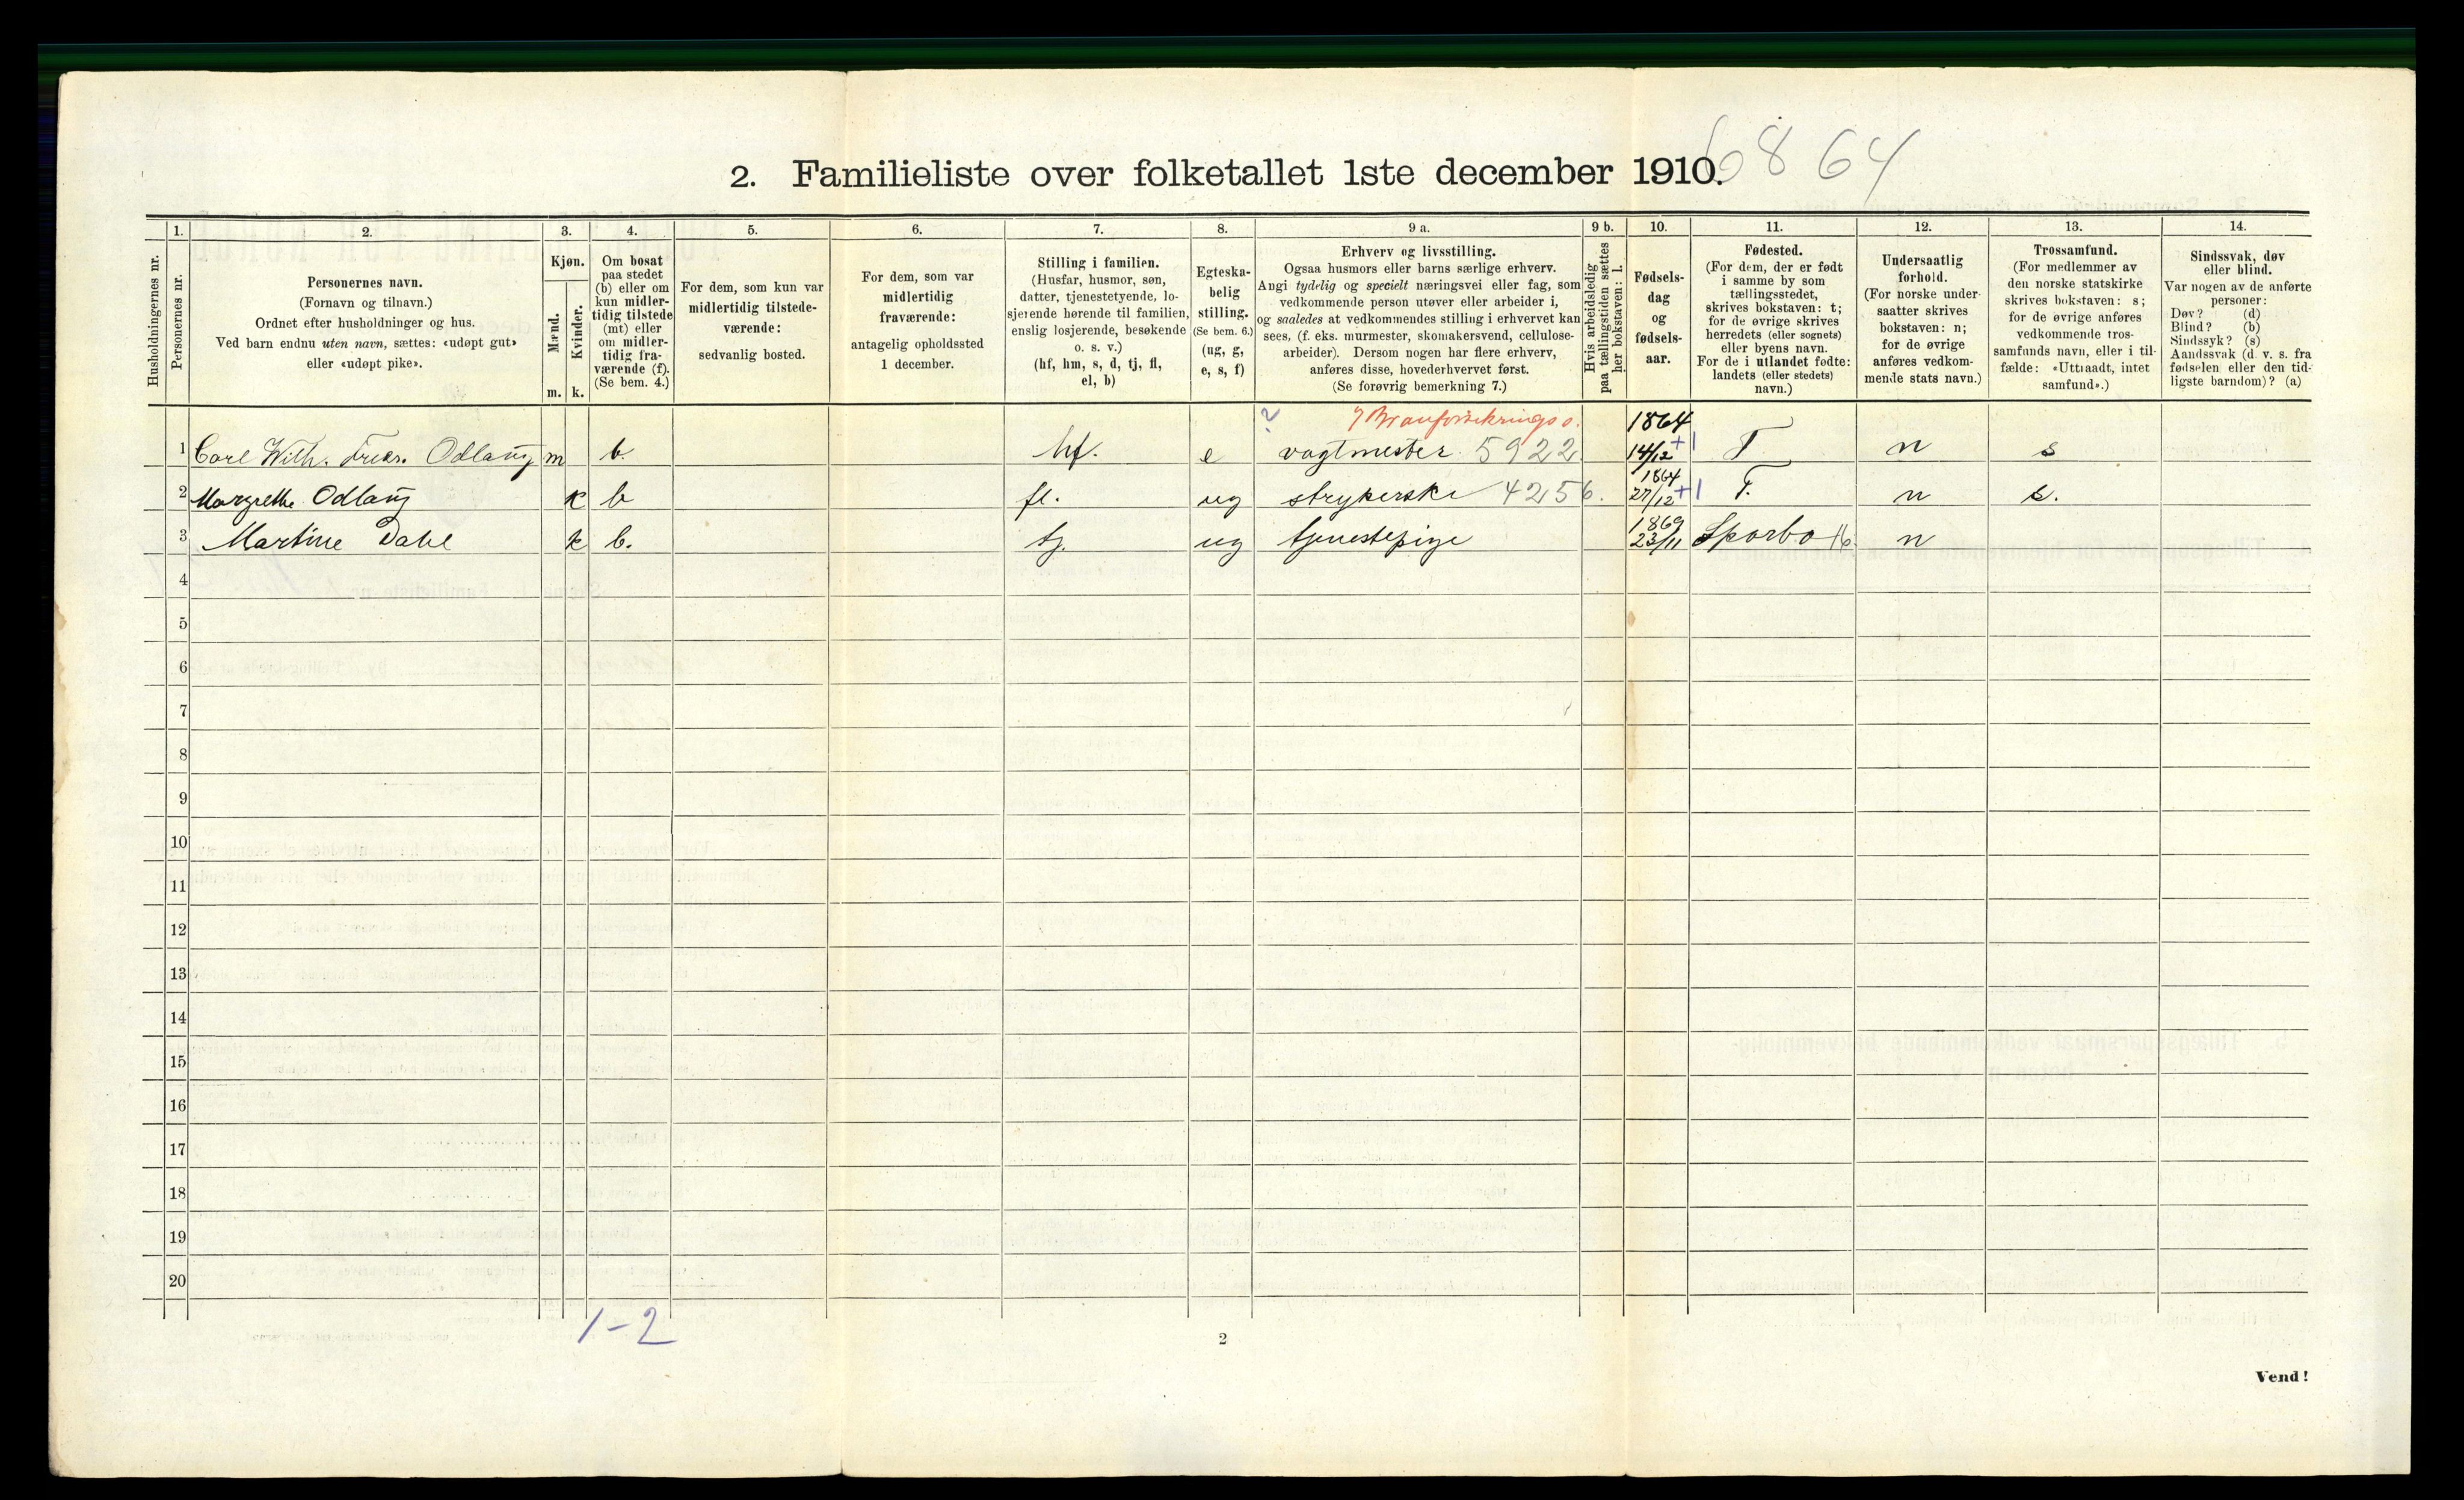 6864
2. Familieliste over folketallet 1ste december 1910.
Husholdningernes nr.
1.
Personernes nr.
2.
Personernes navn.
(Fornavn og tilnavn.)
Ordnet efter husholdninger og hus.
Ved barn endnu uten navn, sættes: «udøpt gut»
eller «udøpt pike».
3.
Kjøn.
Mænd.
Kvinder.
m. k.
4.
Om bosat
paa stedet
(b) eller om
kun midler-
tidig tilstede
(mt) eller
om midler-
tidig fra-
værende (f).
(Se bem. 4.)
5.
For dem, som kun var
midlertidig tilstede-
værende:
sedvanlig bosted.
6.
For dem, som var
midlertidig
fraværende:
antagelig opholdssted
1 december.
7.
Stilling i familien.
(Husfar, husmor, søn,
datter, tjenestetyende, lo-
sjerende hørende til familien,
enslig losjerende, besøkende
o. s. v.)
(hf, hm, s, d, tj, fl,
el, b)
8.
Egteska-
belig
stilling.
(Se bem. 6.)
(ug, g,
e, s, f)
9 a.
Erhverv og livsstilling.
Ogsaa husmors eller barns særlige erhverv.
Angi tydelig og specielt næringsvei eller fag, som
vedkommende person utøver eller arbeider i,
og saaledes at vedkommendes stilling i erhvervet kan
sees, (f. eks. murmester, skomakersvend, cellulose-
arbeider). Dersom nogen har flere erhverv,
anføres disse, hovederhvervet først.
(Se forøvrig bemerkning 7.)
9 b.
Hvis arbeidsledig
paa tællingstiden sættes
her bokstaven: l.
10.
Fødsels-
dag
og
fødsels-
aar.
11.
Fødested.
(For dem, der er født
i samme by som
tællingsstedet,
skrives bokstaven: t;
for de øvrige skrives
herredets (eller sognets)
eller byens navn.
For de i utlandet fødte:
landets (eller stedets)
navn.)
12.
Undersaatlig
forhold.
(For norske under-
saatter skrives
bokstaven: n;
for de øvrige
anføres vedkom-
mende stats navn.)
13.
Trossamfund.
(For medlemmer av
den norske statskirke
skrives bokstaven: s;
for de øvrige anføres
vedkommende tros-
samfunds navn, eller i til-
fælde: «Uttraadt, intet
samfund».)
14.
Sindssvak, døv
eller blind.
Var nogen av de anførte
personer:
Døv? (d)
Blind? (b)
Sindssyk? (s)
Aandssvak (d. v. s. fra
fødselen eller den tid-
ligste barndom)? (a)
? 1864
1 Carl Wilh. Odlaug m b. hf. e vagtmester 5922 14/12 +1 T n s
1864
2 Margrethe Odlaug k b fl. ug strykerske 4256. 27/12 +1 T. n s.
1869
3 Martine Dahl k b. tj. ug tjenestepige 23/11 Sparbo 16 n
4
5
6
7
8
9
10
11
12
13
14
15
16
17
18
19
20
1-2
2
Vend!